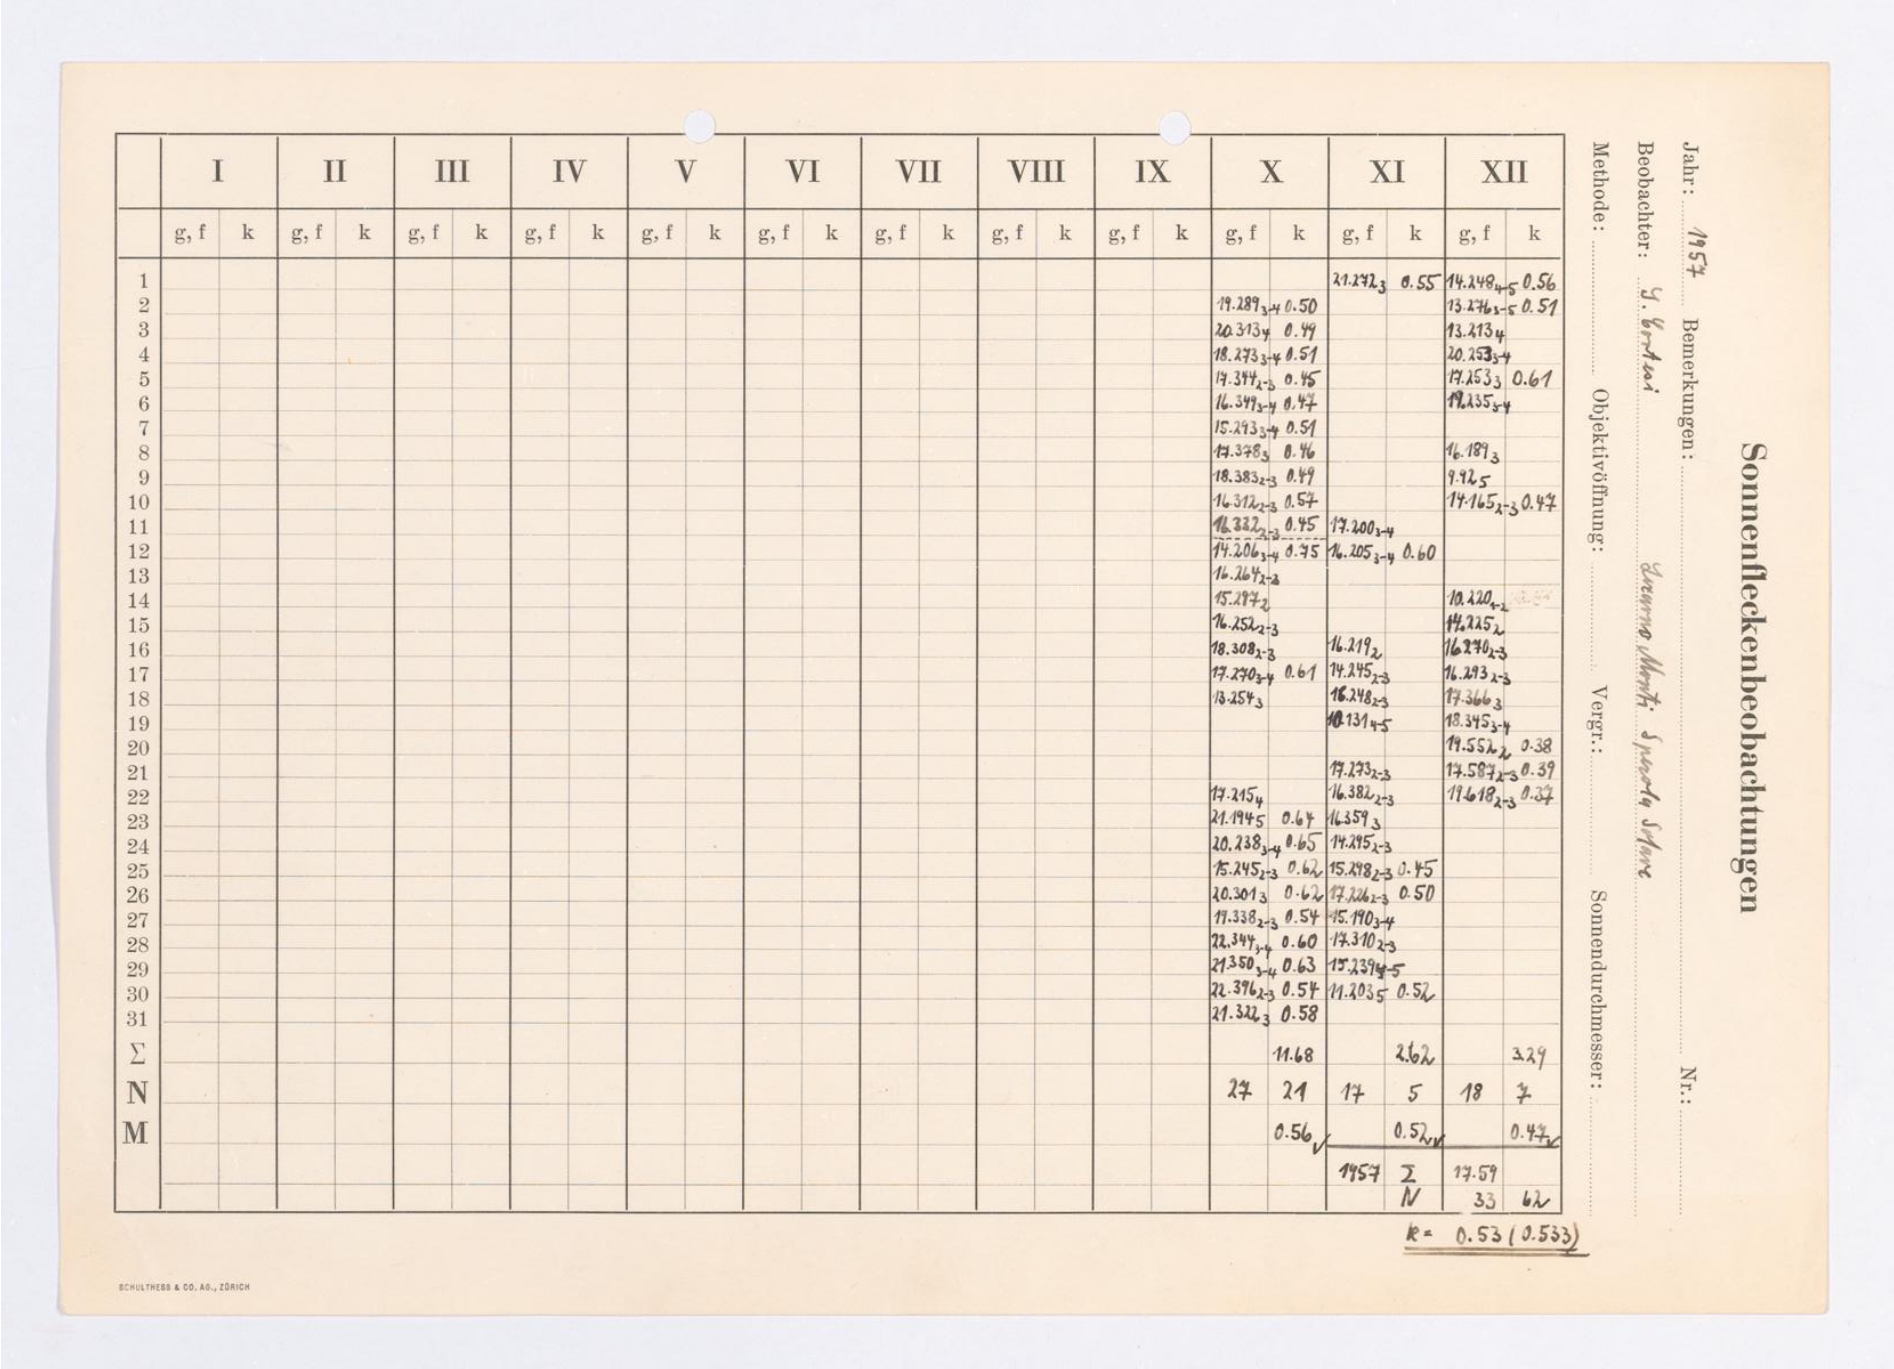 Sonnenfleckenbeobachtungen
Jahr: 1957 Bemerkungen: Nr.:
Beobachter: S. Cortesi Locarno Monti Specola Solare
Methode: Objektivöffnung: Vergr.: Sonnendurchmesser:
I II III IV V VI VII VIII IX X XI XII
g, f k g, f k g, f k g, f k g, f k g, f k g, f k g, f k g, f k g, f k g, f k g, f k
1 21.272 3 0.55 14.248 4-5 0.56
2 19.289 3-4 0.50 13.276 3-5 0.51
3 20.313 4 0.49 13.213 4
4 18.273 3-4 0.51 20.253 3-4
5 17.344 2-3 0.45 17.253 3 0.61
6 16.349 3-4 0.47 19.235 3-4
7 15.293 3-4 0.51
8 17.378 3 0.46 16.189 3
9 18.383 2-3 0.49 9.92 5
10 16.312 2-3 0.57 14.165 2-3 0.47
11 16.332 2-3 0.45 17.200 3-4
12 14.206 3-4 0.75 16.205 3-4 0.60
13 16.264 2-3
14 15.297 2 10.220 1-2
15 16.252 2-3 14.225 2
16 18.308 2-3 16.219 2 16.270 2-3
17 17.270 3-4 0.61 14.245 2-3 16.293 2-3
18 13.254 3 16.248 2-3 17.366 3
19 10.131 4-5 18.345 3-4
20 19.552 2 0.38
21 17.273 2-3 17.587 2-3 0.39
22 17.215 4 16.382 2-3 19.618 2-3 0.37
23 21.194 5 0.64 16.359 3
24 20.238 3-4 0.65 14.295 2-3
25 15.245 2-3 0.62 15.298 2-3 0.45
26 20.301 3 0.62 17.226 2-3 0.50
27 19.338 2-3 0.54 15.190 3-4
28 22.344 3-4 0.60 17.310 2-3
29 21.350 3-4 0.63 15.239 4-5
30 22.396 2-3 0.54 11.203 5 0.52
31 21.322 3 0.58
Σ 11.68 2.62 3.29
N 27 21 17 5 18 7
M 0.56 ✓ 0.52 ✓ 0.47 ✓
1957 Σ 17.59
N 33 62
k = 0.53 (0.533)
SCHULTHESS & CO. AG., ZÜRICH